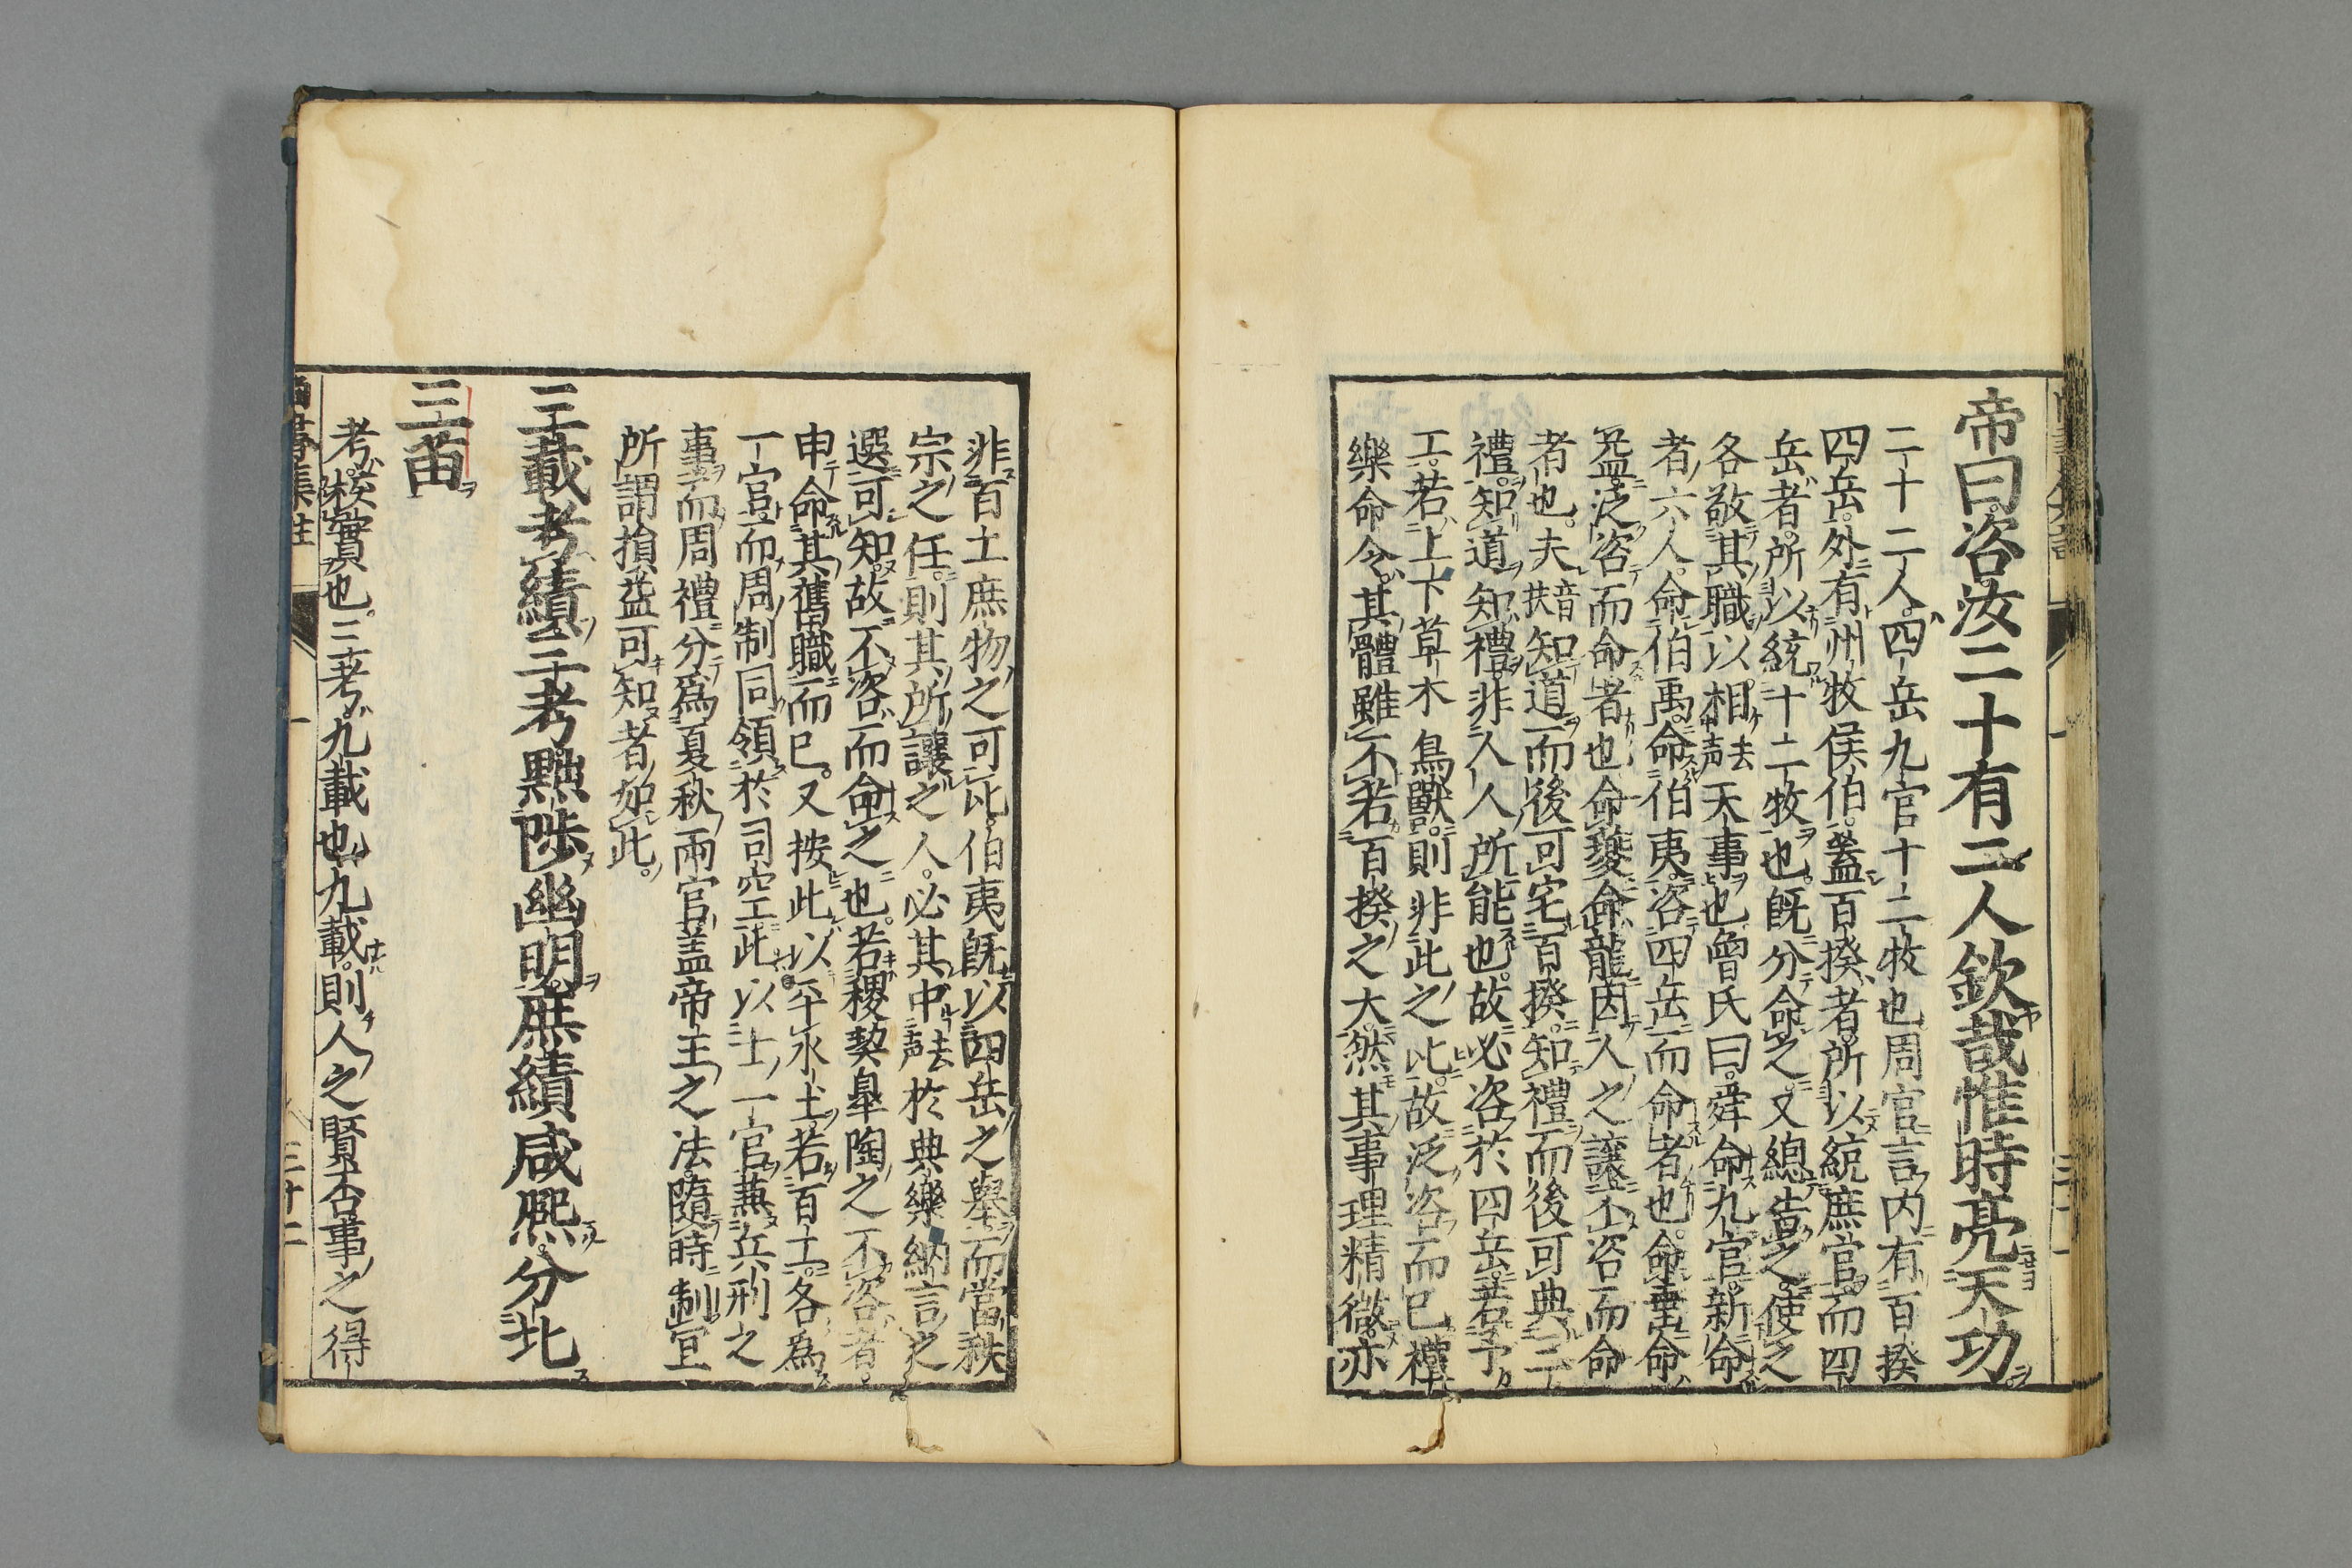 帝曰咨汝二十有二人欽哉惟時亮天功
二十二人四岳九官十二牧也周官言内有百揆
四岳外有州牧侯伯蓋百揆者所以統庶官而四
岳者所以統十二牧也既分命之又總告之使之
各敬其職以相去声天事也曾氏曰舜命九官新命
者六人命伯禹命伯夷咨四岳而命者也命垂命
益泛咨而命者也命夔命龍因人之讓不咨而命
者也夫音扶知道而後可宅百揆知禮而後可典三
禮知道知禮非人人所能也故必咨於四岳若予
工若上下草木鳥獸則非此之比故泛咨而已禮
樂命令其體雖不若百揆之大然其事理精微亦
非百工庶物之可比伯夷既以四岳之舉而當秩
宗之任則其所讓之人必其中去声於典樂納言之
選可知故不咨而命之也若稷契皐陶之不咨者
申命其舊職而已又按此以平水土若百工各爲
一官而周制同領於司空此以士一官兼兵刑之
事而周禮分爲夏秋兩官蓋帝王之法隨時制宜
所謂損益可知者如此
三載考績三考黜陟幽明庶績咸熙分北
三苗
考核實也三考九載也九載則人之賢否事之得
書集註
三十二